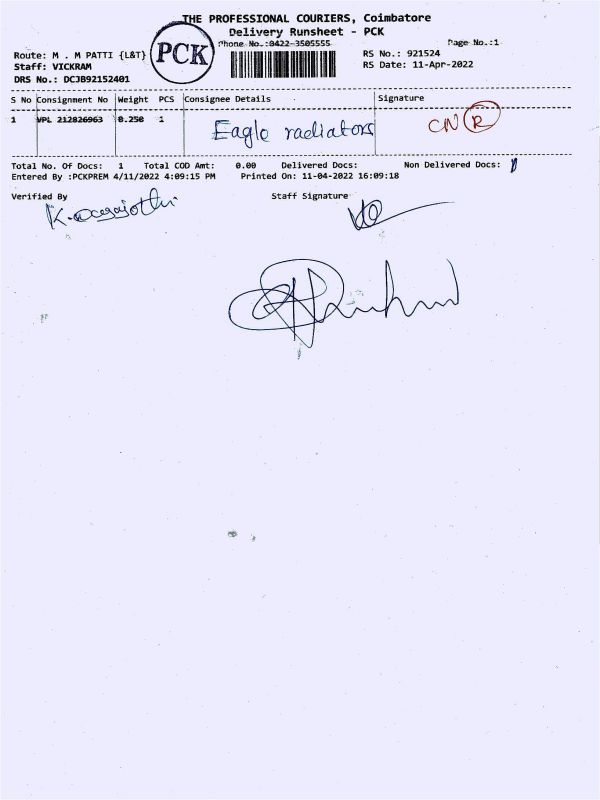 THE PROFESSIONAL COURIERS, Coimbatore
Delivery Runsheet - PCK
PCK
Phone No.:0422-3505555
Page No.:1
Route: M . M PATTI {L&T}
RS No.: 921524
Staff: VICKRAM
RS Date: 11-Apr-2022
DRS No.: DCJB92152401
S No Consignment No Weight PCS Consignee Details Signature
1 VPL 212826963 0.250 1 Eagle radiators CN R
Total No. Of Docs: 1 Total COD Amt: 0.00 Delivered Docs: Non Delivered Docs: 1
Entered By :PCKPREM 4/11/2022 4:09:15 PM Printed On: 11-04-2022 16:09:18
Verified By Staff Signature